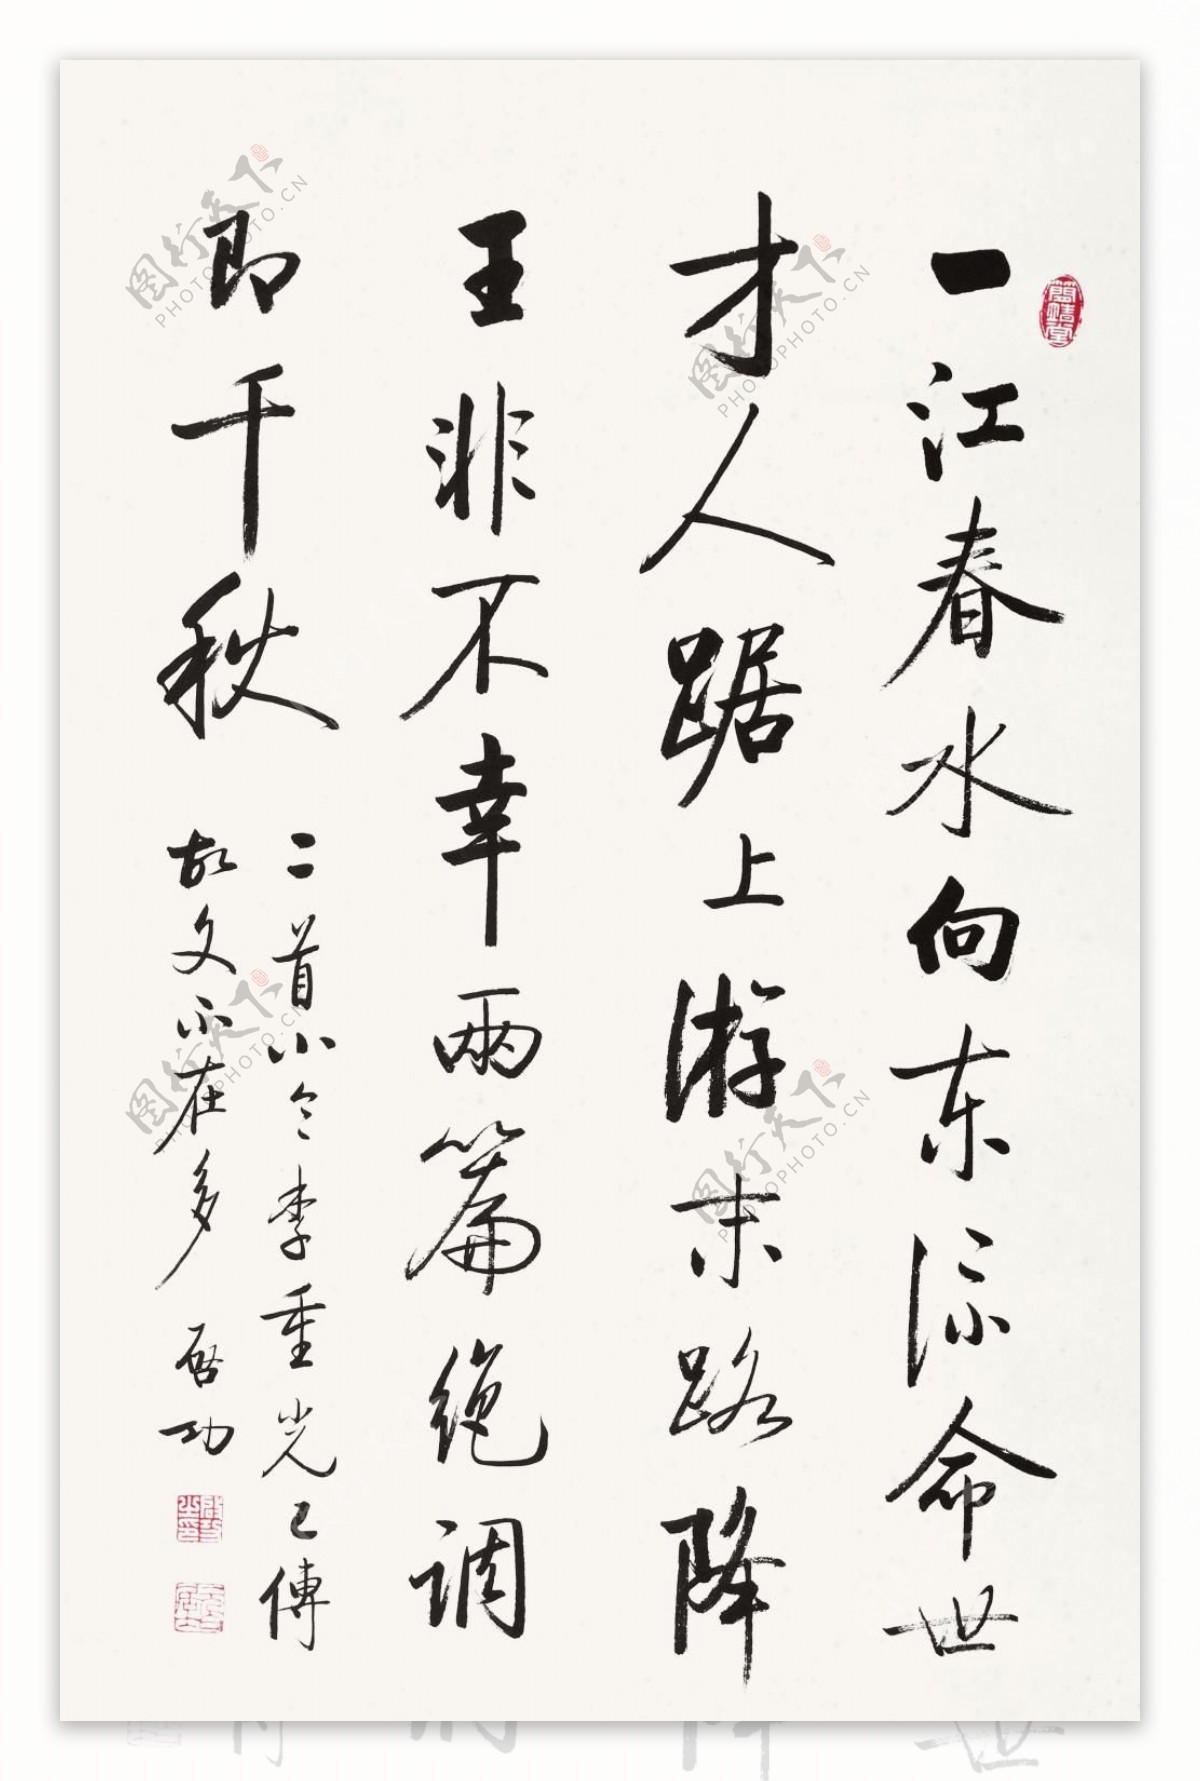 一江春水向东流命世
才人踞上游末路降
王非不幸两篇绝调
即千秋
二首小令李重光已传
故文不在多
启功
簡靖堂
图行天下
PHOTOPHOTO.CN
图行天下
PHOTOPHOTO.CN
图行天下
PHOTOPHOTO.CN
图行天下
PHOTOPHOTO.CN